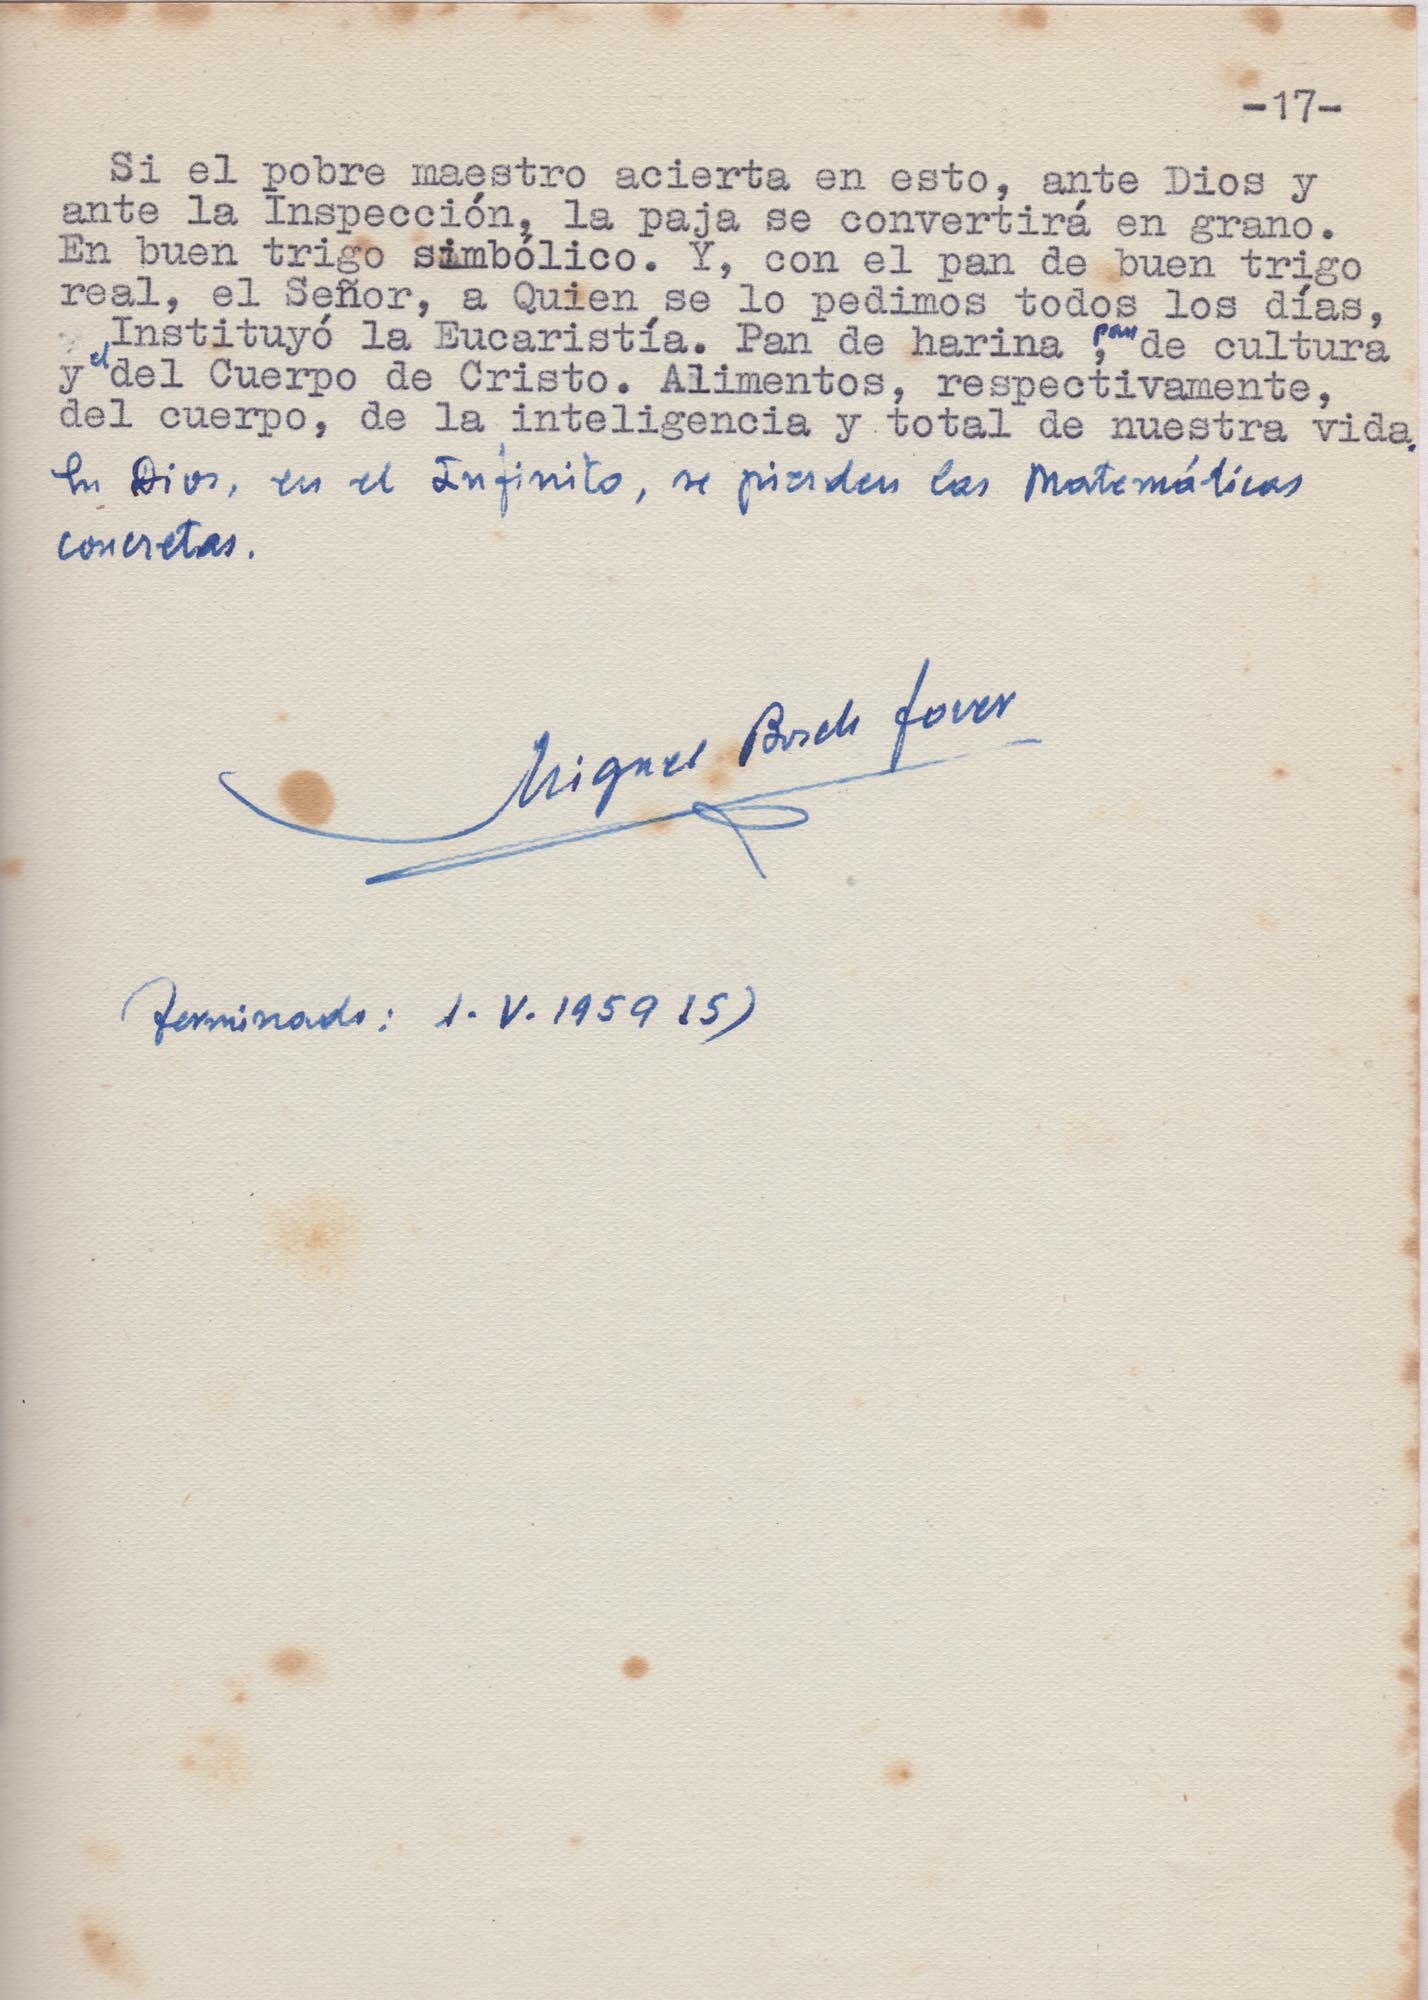 -17-
Si el pobre maestro acierta en esto, ante Dios y
ante la Inspección, la paja se convertirá en grano.
En buen trigo simbólico. Y, con el pan de buen trigo
real, el Señor, a Quien se lo pedimos todos los días,
Instituyó la Eucaristía. Pan de harina , pan de cultura
y el del Cuerpo de Cristo. Alimentos, respectivamente,
del cuerpo, de la inteligencia y total de nuestra vida.
En Dios, en el Infinito, se pierden las Matemáticas
concretas.
Miguel Bosch Jover
Terminado: 1.V.1959 (S)